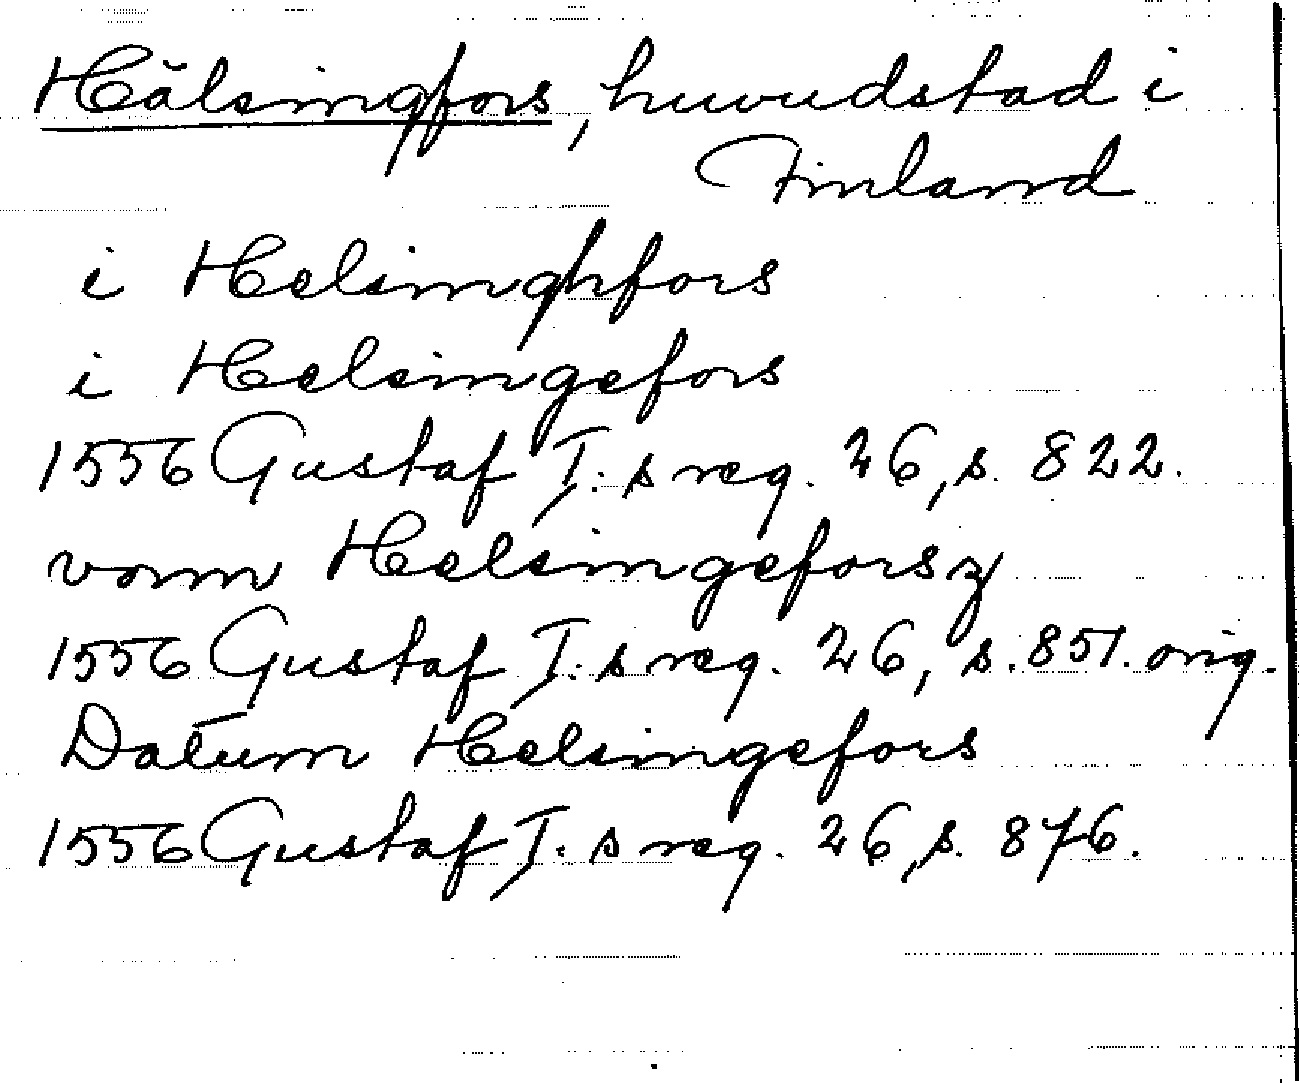 Hälsingfors, huvudstad i
Finland
i Helsinghfors
i Helsingefors
1556 Gustaf I:s reg. 26, s. 822.
vonn Helsingeforsz
1556 Gustaf I:s reg. 26, s. 851. orig.
Datum Helsingefors
1556 Gustaf I:s reg. 26, s. 876.